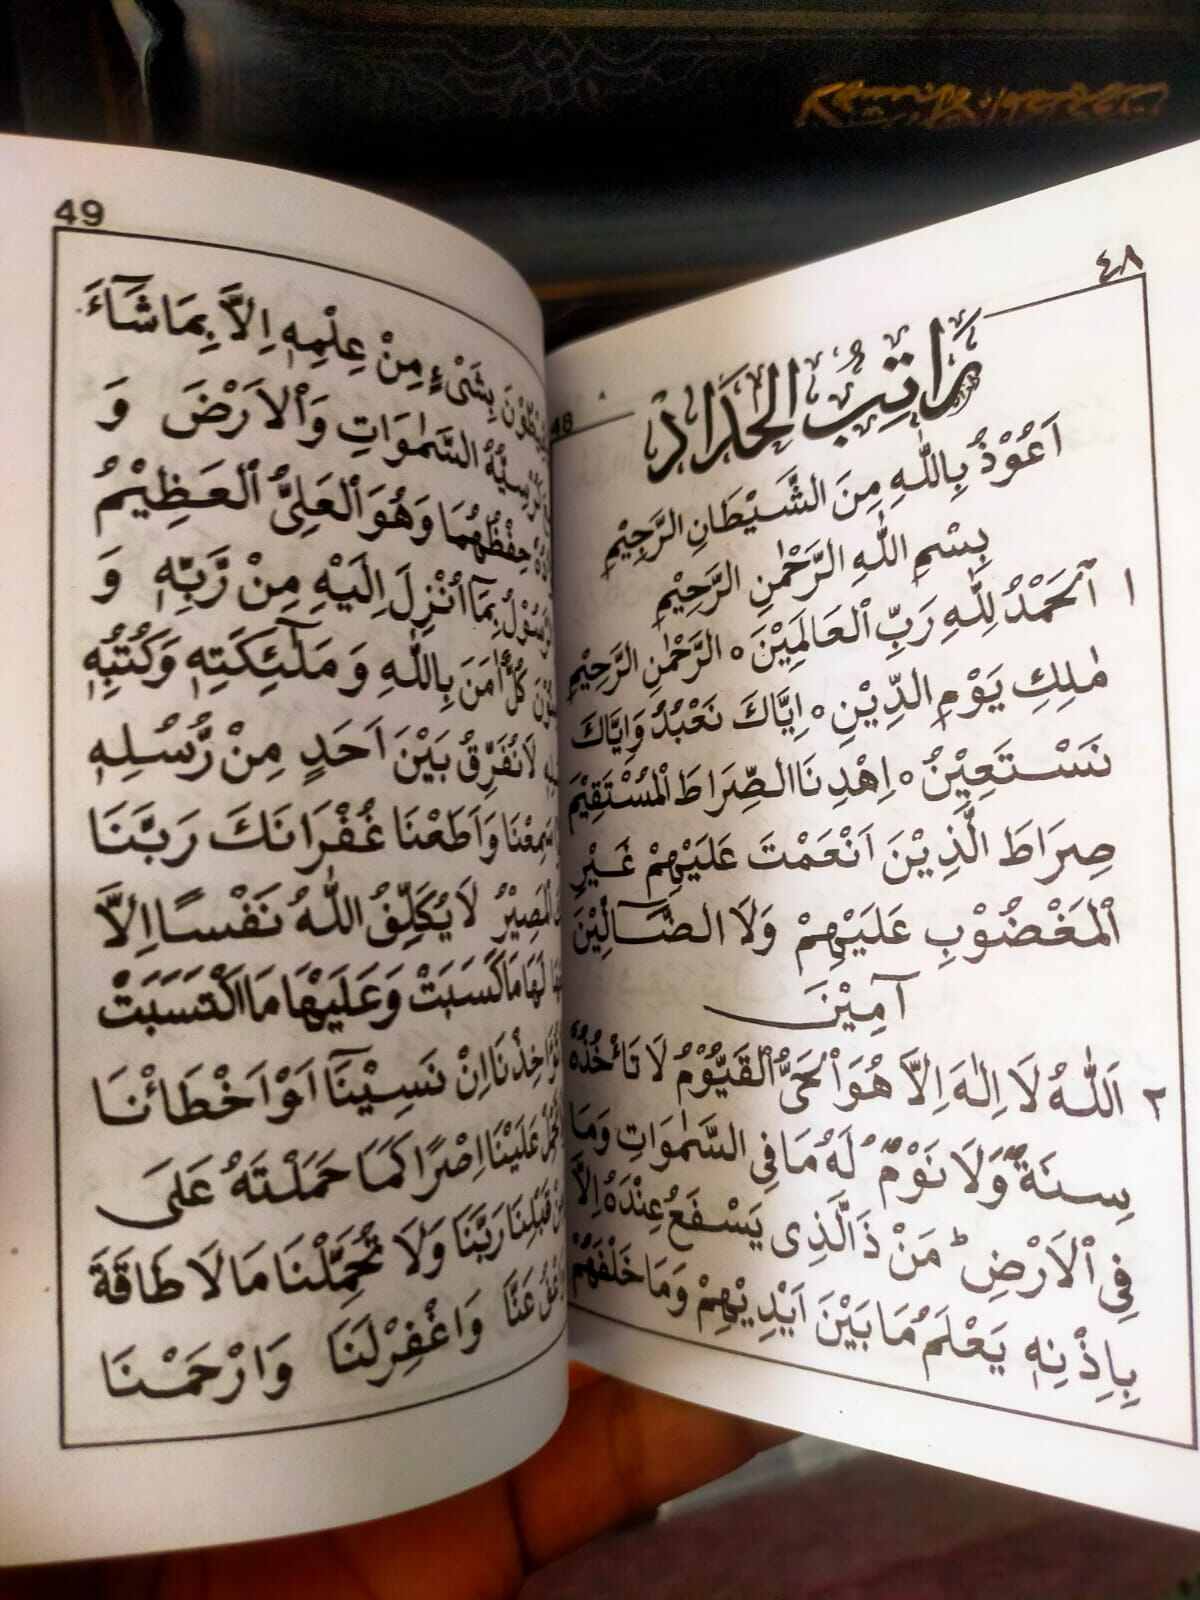 ٤٨
رَاتِبُ الْحَدَّادِ
اَعُوْذُ بِاللّٰهِ مِنَ الشَّيْطَانِ الرَّجِيْمِ
بِسْمِ اللّٰهِ الرَّحْمٰنِ الرَّحِيْمِ
١ اَلْحَمْدُ لِلّٰهِ رَبِّ الْعَالَمِيْنَ ٥ الرَّحْمٰنِ الرَّحِيْمِ
مٰلِكِ يَوْمِ الدِّيْنِ ٥ اِيَّاكَ نَعْبُدُ وَاِيَّاكَ
نَسْتَعِيْنُ ٥ اِهْدِنَا الصِّرَاطَ الْمُسْتَقِيْمَ
صِرَاطَ الَّذِيْنَ اَنْعَمْتَ عَلَيْهِمْ غَيْرِ
الْمَغْضُوْبِ عَلَيْهِمْ وَلَا الضَّآلِّيْنَ
آمِيْنَ
٢ اَللّٰهُ لَا اِلٰهَ اِلَّا هُوَ الْحَيُّ الْقَيُّوْمُ لَا تَأْخُذُهُ
سِنَةٌ وَلَا نَوْمٌ لَهُ مَا فِي السَّمٰوَاتِ وَمَا
فِي الْاَرْضِ ط مَنْ ذَا الَّذِى يَسْفَعُ عِنْدَهُ اِلَّا
بِاِذْنِهٖ يَعْلَمُ مَا بَيْنَ اَيْدِيْهِمْ وَمَا خَلْفَهُمْ
49
بِشَىْءٍ مِنْ عِلْمِهٖ اِلَّا بِمَا شَآءَ
السَّمٰوَاتِ وَالْاَرْضَ وَ
حِفْظُهُمَا وَهُوَ الْعَلِىُّ الْعَظِيْمُ
بِمَآ اُنْزِلَ اِلَيْهِ مِنْ رَّبِّهٖ وَ
كُلٌّ اٰمَنَ بِاللّٰهِ وَمَلٰٓئِكَتِهٖ وَكُتُبِهٖ
لَا نُفَرِّقُ بَيْنَ اَحَدٍ مِنْ رُّسُلِهٖ
وَاَطَعْنَا غُفْرَانَكَ رَبَّنَا
الْمَصِيْرُ لَا يُكَلِّفُ اللّٰهُ نَفْسًا اِلَّا
لَهَا مَا كَسَبَتْ وَعَلَيْهَا مَا اكْتَسَبَتْ
اِنْ نَسِيْنَآ اَوْ اَخْطَأْنَا
عَلَيْنَا اِصْرًا كَمَا حَمَلْتَهُ عَلَى
قَبْلِنَا رَبَّنَا وَلَا تُحَمِّلْنَا مَا لَا طَاقَةَ
عَنَّا وَاغْفِرْلَنَا وَارْحَمْنَا